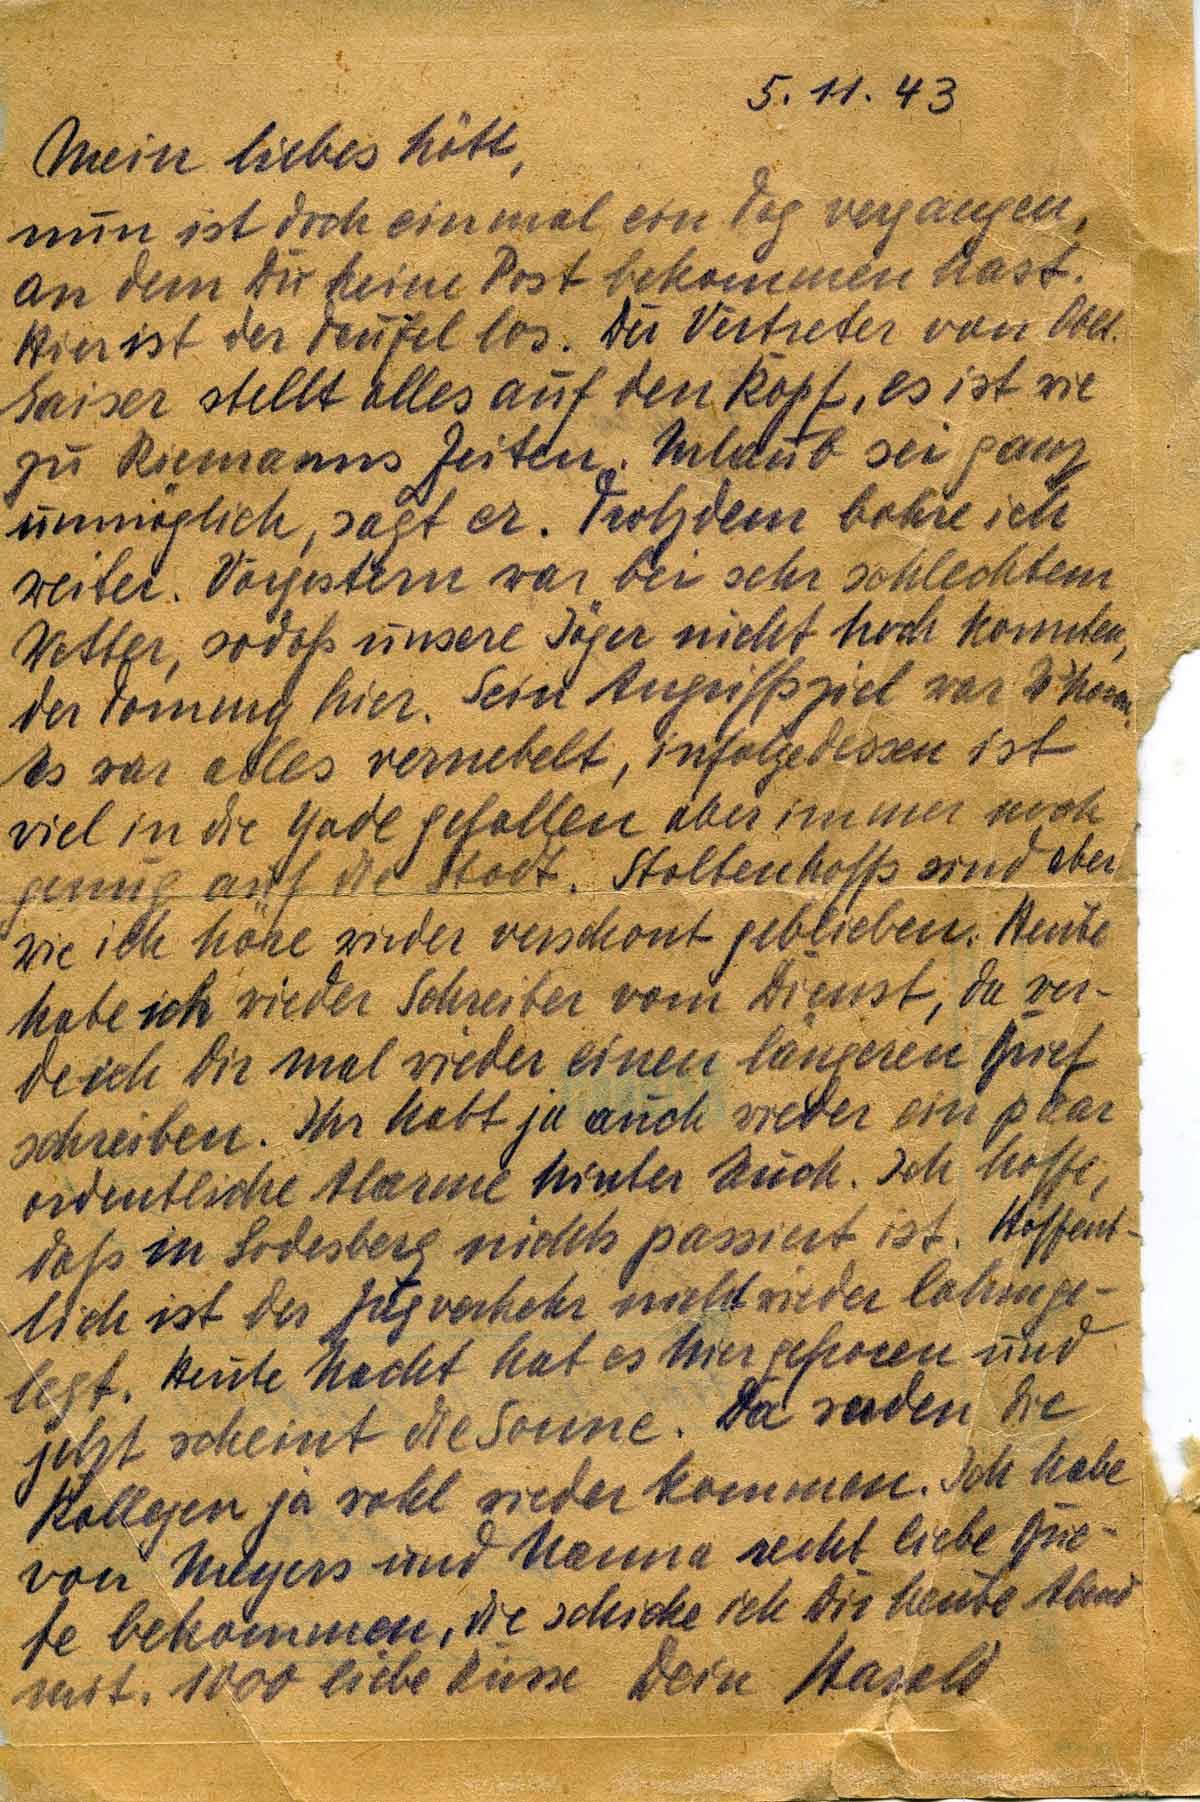 5. 11. 43
Mein liebes Kött,
nun ist doch einmal ein Tag vergangen,
an dem Du keine Post bekommen hast.
Hier ist der Teufel los. Der Vertreter von
Saiser stellt alles auf den Kopf, es ist wie
zu Riemanns Zeiten. Urlaub sei ganz
unmöglich, sagt er. Trotzdem bohre ich
weiter. Vorgestern war bei sehr schlechtem
Wetter, sodaß unsere Jäger nicht hoch konnten,
der Tommy hier. Sein Angriffsziel war W'haven.
Es war alles vernebelt, infolgedessen ist
viel in die Jade gefallen aber immer noch
genug auf die Stadt. Stoltenhoffs sind aber
wie ich höre wieder verschont geblieben. Heute
habe ich wieder Schreiber vom Dienst, da wer-
de ich Dir mal wieder einen längeren Brief
schreiben. Ihr habt ja auch wieder ein paar
ordentliche Alarme hinter Euch. Ich hoffe,
daß in Godesberg nichts passiert ist. Hoffent-
lich ist der Zugverkehr nicht wieder lahmge-
legt. Heute Nacht hat es hier gefroren und
jetzt scheint die Sonne. Da werden die
Kollegen ja wohl wieder kommen. Ich habe
von Meyers und Hanna recht liebe Brie-
fe bekommen, die schicke ich Dir heute Abend
mit. 1000 liebe Küsse Dein Harald